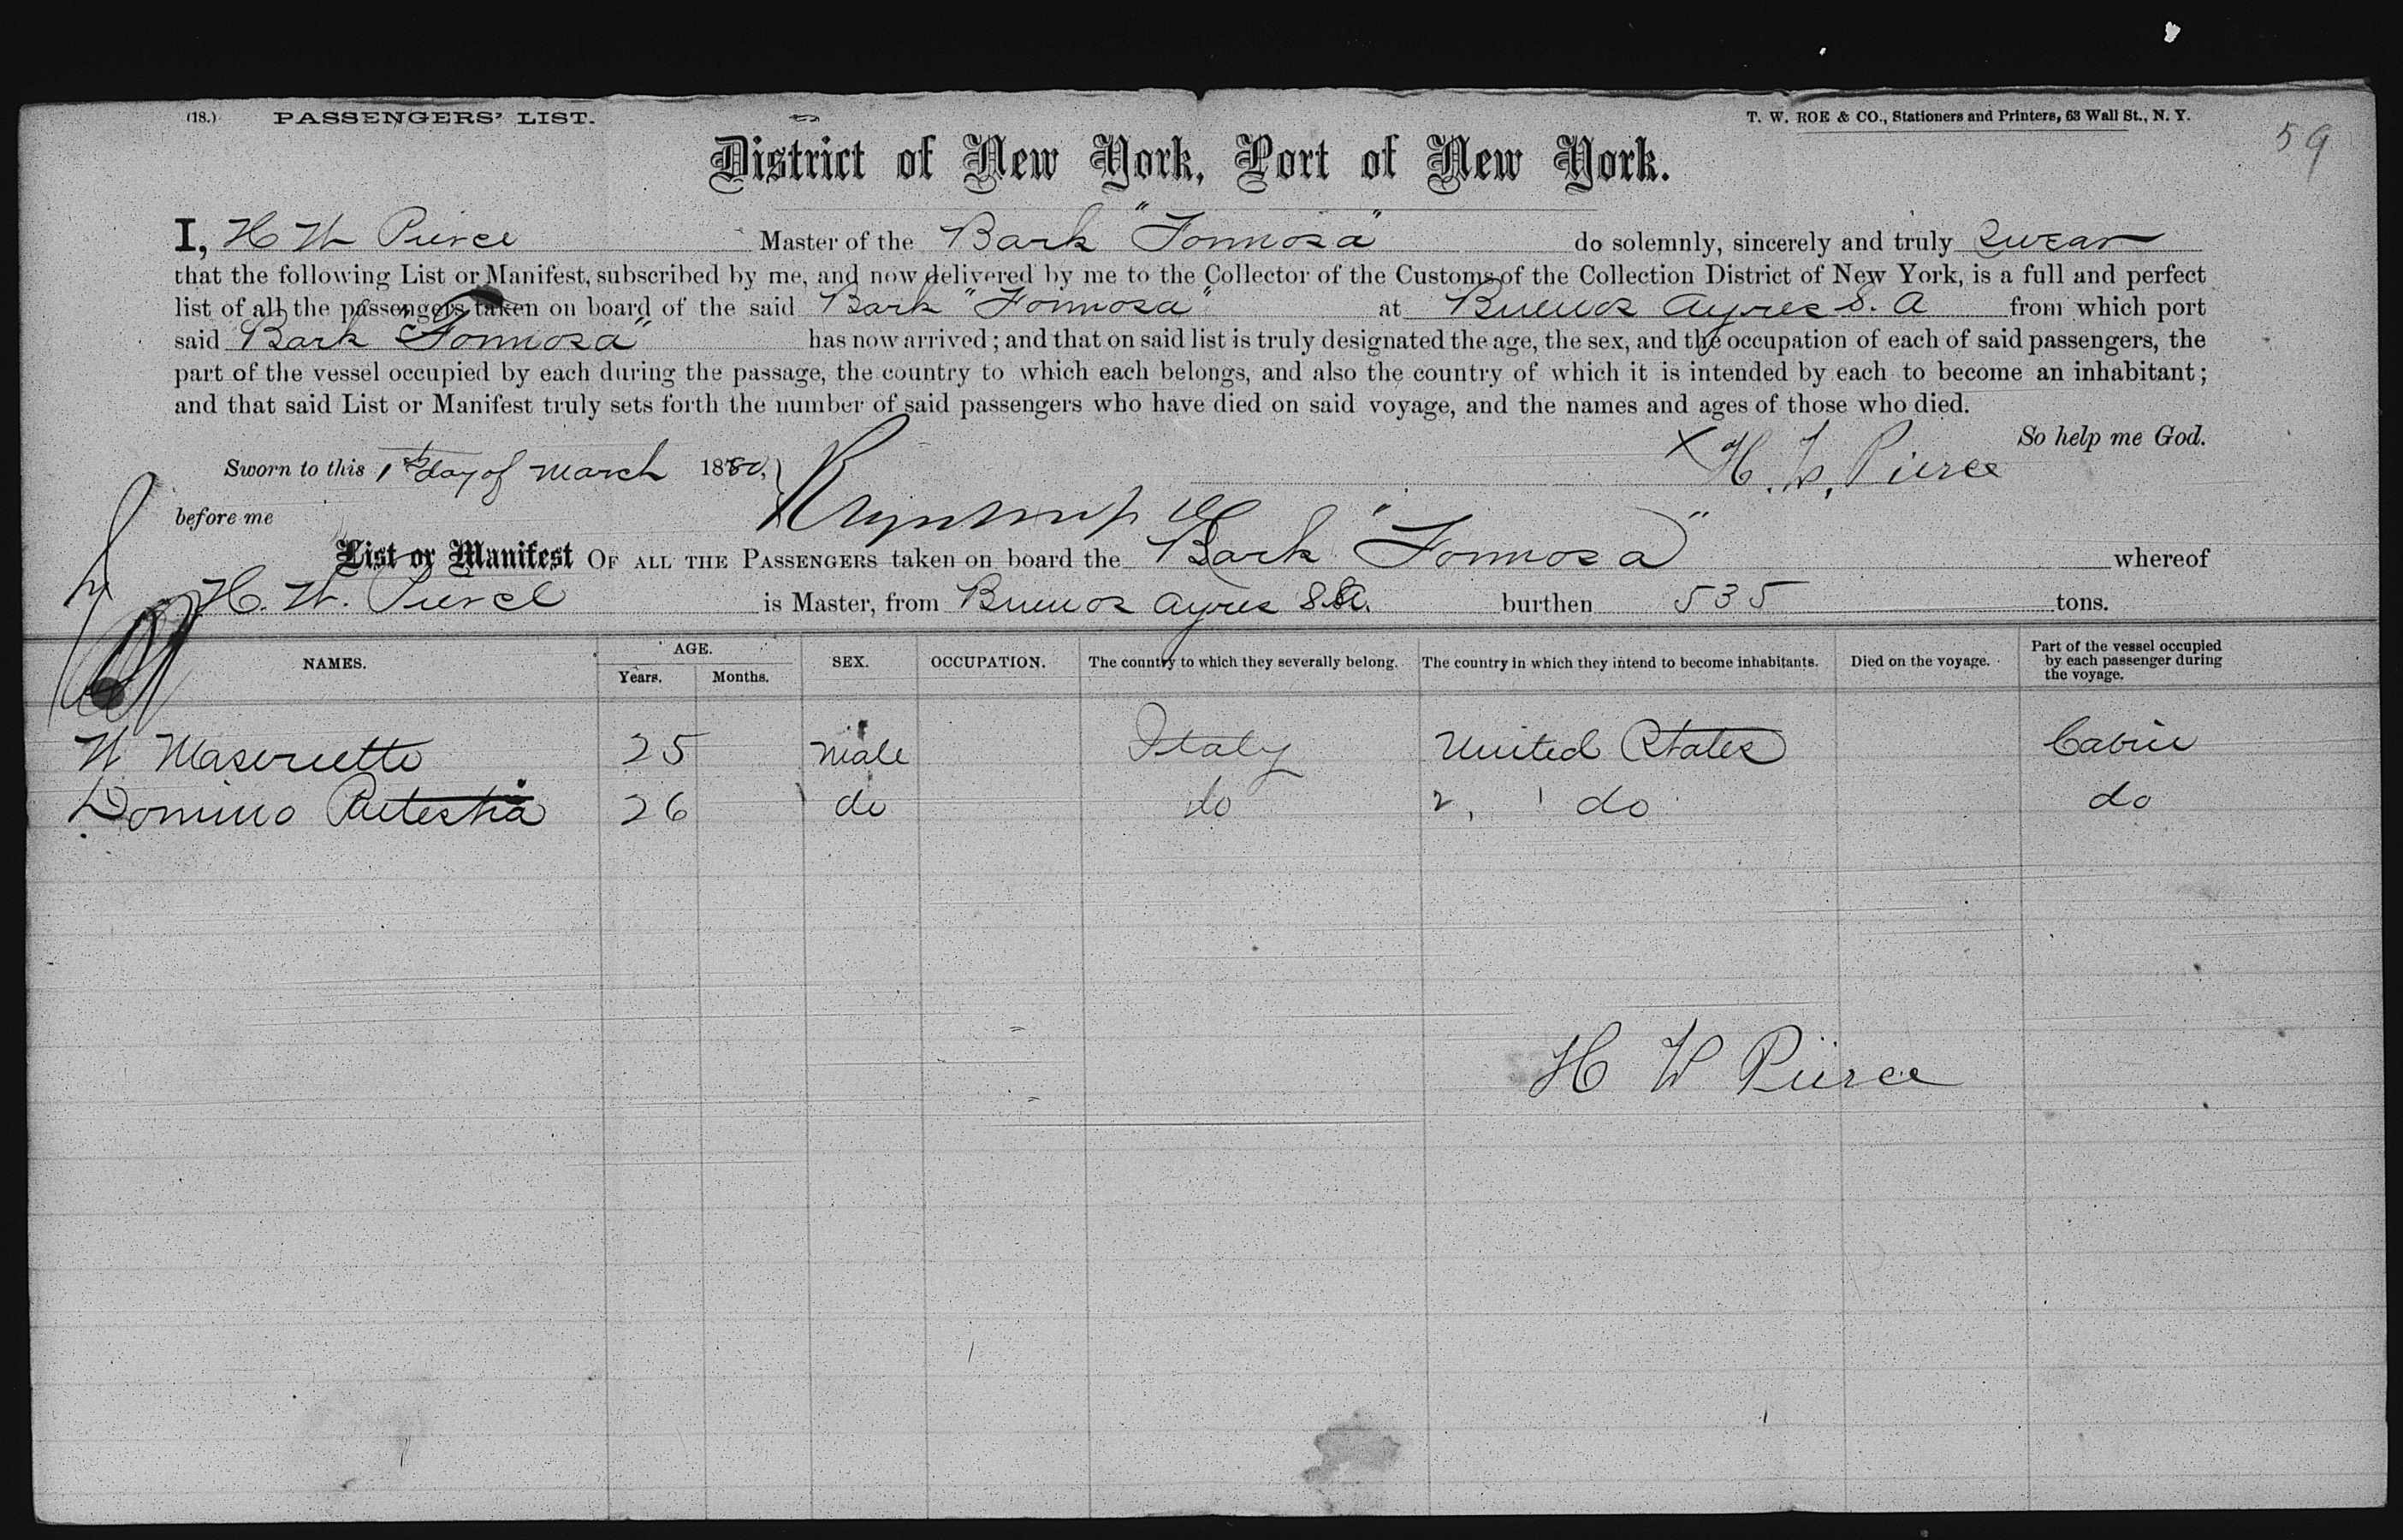 (18.) PASSENGERS' LIST. T. W. ROE & CO., Stationers and Printers, 63 Wall St., N. Y.
59
District of New York, Port of New York.
I, H W Pierce Master of the Bark "Formosa" do solemnly, sincerely and truly Swear
that the following List or Manifest, subscribed by me, and now delivered by me to the Collector of the Customs of the Collection District of New York, is a full and perfect
list of all the passengers taken on board of the said Bark "Formosa" at Buenos Ayres S. A from which port
said Bark "Formosa" has now arrived; and that on said list is truly designated the age, the sex, and the occupation of each of said passengers, the
part of the vessel occupied by each during the passage, the country to which each belongs, and also the country of which it is intended by each to become an inhabitant;
and that said List or Manifest truly sets forth the number of said passengers who have died on said voyage, and the names and ages of those who died.
So help me God.
Sworn to this 1st day of March 1880, X H. W. Pierce
before me
List or Manifest OF ALL THE PASSENGERS taken on board the Bark "Formosa" whereof
H. W. Pierce is Master, from Buenos Ayres S.A. burthen 535 tons.
NAMES. AGE. Years. Months. SEX. OCCUPATION. The country to which they severally belong. The country in which they intend to become inhabitants. Died on the voyage. Part of the vessel occupied by each passenger during the voyage.
25 male Italy United States Cabin
Domino 26 do do do do
H W Pierce